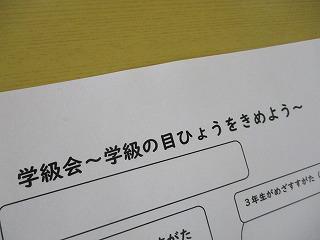 学級会～学級の目ひょうをきめよう～
3年生がめざすすがた（
すがた